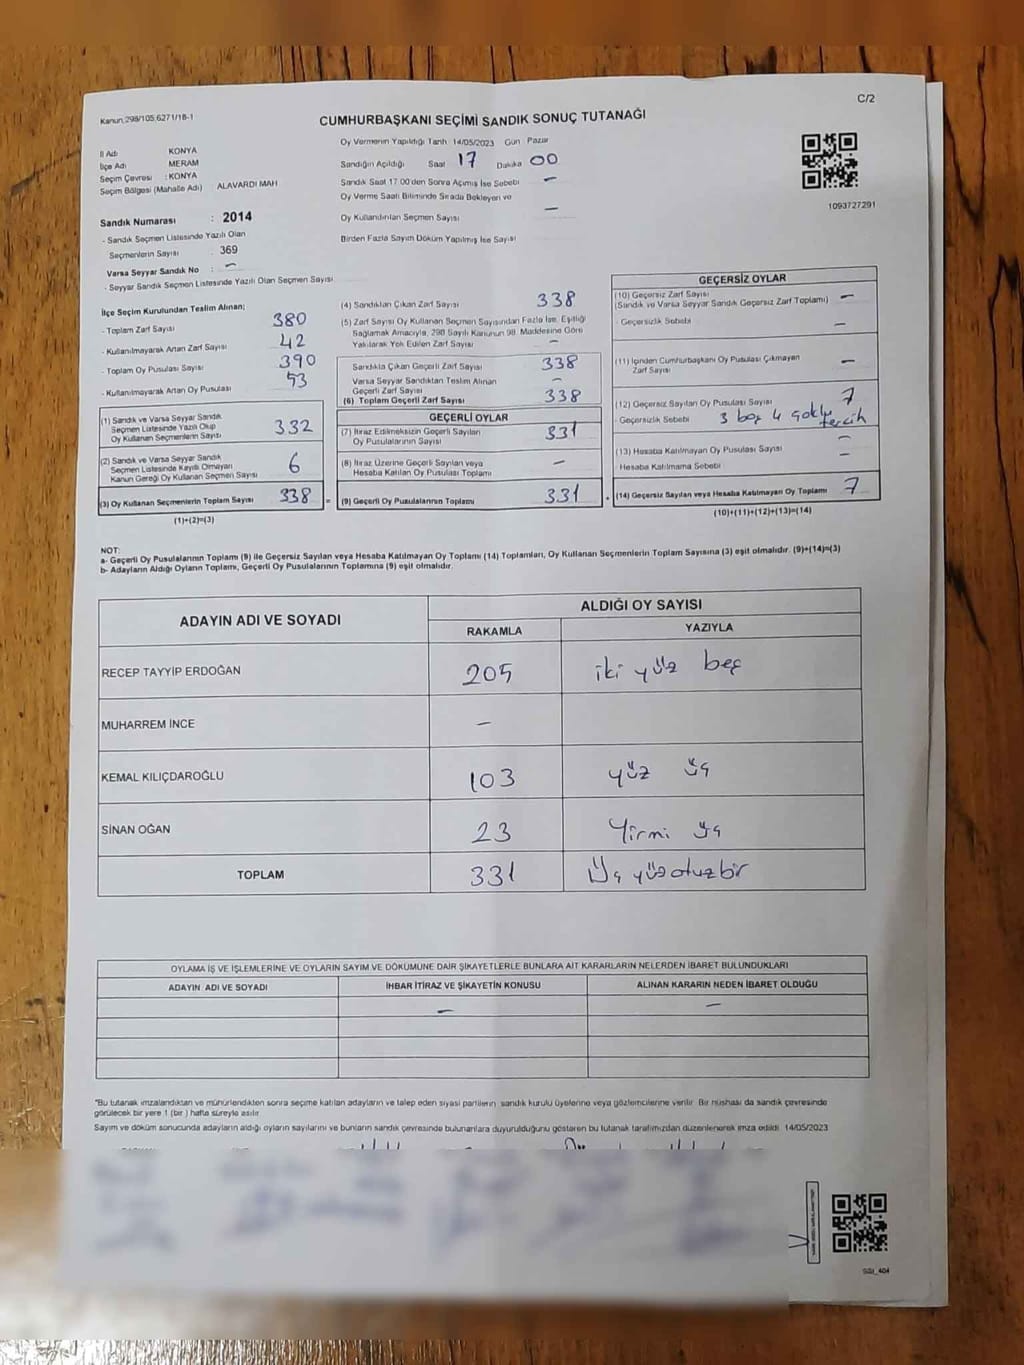 C/2
Kanun,298/105,6271/18-1
CUMHURBAŞKANI SEÇİMİ SANDIK SONUÇ TUTANAĞI
İl Adı KONYA
İlçe Adı MERAM
Seçim Çevresi : KONYA
Seçim Bölgesi (Mahalle Adı) : ALAVARDI MAH
Sandık Numarası : 2014
- Sandık Seçmen Listesinde Yazılı Olan
Seçmenlerin Sayısı : 369
Varsa Seyyar Sandık No : –
- Seyyar Sandık Seçmen Listesinde Yazılı Olan Seçmen Sayısı
Oy Vermenin Yapıldığı Tarih 14/05/2023 Gün Pazar
Sandığın Açıldığı Saat 17 Dakika 00
Sandık Saat 17.00'den Sonra Açılmış İse Sebebi –
Oy Verme Saati Bitiminde Sırada Bekleyen ve
Oy Kullandırılan Seçmen Sayısı –
Birden Fazla Sayım Döküm Yapılmış İse Sayısı
1093727291
İlçe Seçim Kurulundan Teslim Alınan;
- Toplam Zarf Sayısı 380
- Kullanılmayarak Artan Zarf Sayısı 42
- Toplam Oy Pusulası Sayısı 390
- Kullanılmayarak Artan Oy Pusulası 53
(1) Sandık ve Varsa Seyyar Sandık
Seçmen Listesinde Yazılı Olup
Oy Kullanan Seçmenlerin Sayısı 332
(2) Sandık ve Varsa Seyyar Sandık
Seçmen Listesinde Kayıtlı Olmayan
Kanun Gereği Oy Kullanan Seçmen Sayısı 6
(3) Oy Kullanan Seçmenlerin Toplam Sayısı 338 =
(1)+(2)=(3)
(4) Sandıktan Çıkan Zarf Sayısı 338
(5) Zarf Sayısı Oy Kullanan Seçmen Sayısından Fazla İse, Eşitliği
Sağlamak Amacıyla, 298 Sayılı Kanunun 98. Maddesine Göre
Yakılarak Yok Edilen Zarf Sayısı –
Sandıkta Çıkan Geçerli Zarf Sayısı 338
Varsa Seyyar Sandıktan Teslim Alınan
Geçerli Zarf Sayısı –
(6) Toplam Geçerli Zarf Sayısı 338
GEÇERLİ OYLAR
(7) İtiraz Edilmeksizin Geçerli Sayılan
Oy Pusulalarının Sayısı 331
(8) İtiraz Üzerine Geçerli Sayılan veya
Hesaba Katılan Oy Pusulası Toplamı –
(9) Geçerli Oy Pusulalarının Toplamı 331 +
GEÇERSİZ OYLAR
(10) Geçersiz Zarf Sayısı
(Sandık ve Varsa Seyyar Sandık Geçersiz Zarf Toplamı) –
- Geçersizlik Sebebi –
(11) İçinden Cumhurbaşkanı Oy Pusulası Çıkmayan
Zarf Sayısı –
(12) Geçersiz Sayılan Oy Pusulası Sayısı 7
- Geçersizlik Sebebi 3 boş 4 çoklu
tercih
(13) Hesaba Katılmayan Oy Pusulası Sayısı –
- Hesaba Katılmama Sebebi –
(14) Geçersiz Sayılan veya Hesaba Katılmayan Oy Toplamı 7
(10)+(11)+(12)+(13)=(14)
NOT:
a- Geçerli Oy Pusulalarının Toplamı (9) ile Geçersiz Sayılan veya Hesaba Katılmayan Oy Toplamı (14) Toplamları, Oy Kullanan Seçmenlerin Toplam Sayısına (3) eşit olmalıdır. (9)+(14)=(3)
b- Adayların Aldığı Oyların Toplamı, Geçerli Oy Pusulalarının Toplamına (9) eşit olmalıdır.
ADAYIN ADI VE SOYADI ALDIĞI OY SAYISI
RAKAMLA YAZIYLA
RECEP TAYYİP ERDOĞAN 205 iki yüz beş
MUHARREM İNCE –
KEMAL KILIÇDAROĞLU 103 yüz üç
SİNAN OĞAN 23 Yirmi üç
TOPLAM 331 Üç yüz otuz bir
OYLAMA İŞ VE İŞLEMLERİNE VE OYLARIN SAYIM VE DÖKÜMÜNE DAİR ŞİKAYETLERLE BUNLARA AİT KARARLARIN NELERDEN İBARET BULUNDUKLARI
ADAYIN ADI VE SOYADI İHBAR İTİRAZ VE ŞİKAYETİN KONUSU ALINAN KARARIN NEDEN İBARET OLDUĞU
– –
*Bu tutanak imzalandıktan ve mühürlendikten sonra seçime katılan adayların ve talep eden siyasi partilerin sandık kurulu üyelerine veya gözlemcilerine verilir. Bir nüshası da sandık çevresinde
görülecek bir yere 1 (bir) hafta süreyle asılır.
Sayım ve döküm sonucunda adayların aldığı oyların sayılarını ve bunların sandık çevresinde bulunanlara duyurulduğunu gösteren bu tutanak tarafımızdan düzenlenerek imza edildi. 14/05/2023